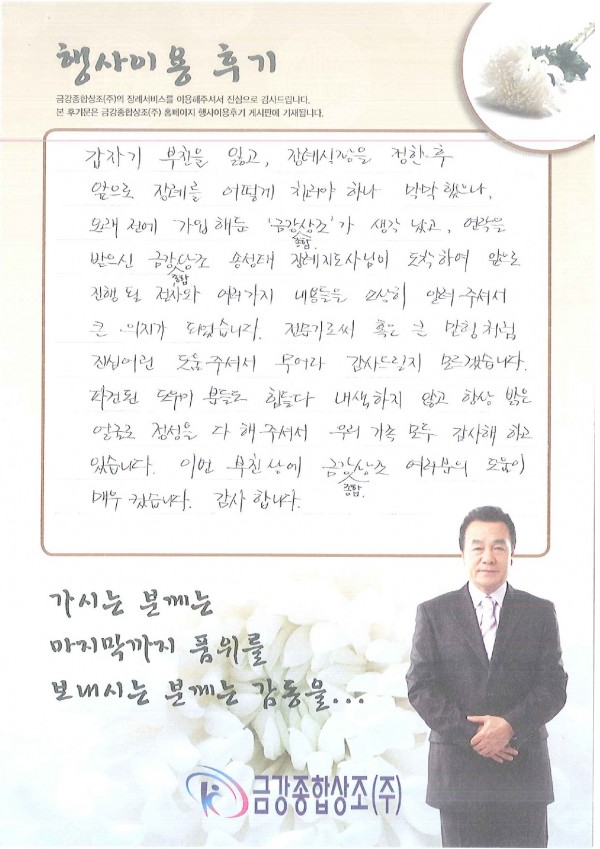 행사이용 후기
금강종합상조(주)의 장례서비스를 이용해주셔서 진심으로 감사드립니다.
본 후기문은 금강종합상조(주) 홈페이지 행사이용후기 게시판에 기재됩니다.
갑자기 부친을 잃고, 장례식장을 정한 후
앞으로 장례를 어떻게 치러야 하나 막막했으나,
오래 전에 가입해둔 '금강종합상조'가 생각 났고, 연락을
받으신 금강종합상조 송성태 장례지도사님이 도착하여 앞으로
진행 될 절차와 여러가지 내용들을 소상히 알려 주셔서
큰 의지가 되었습니다. 전문가로써 혹은 큰 맏형처럼
진심어린 도움 주셔서 무어라 감사드릴지 모르겠습니다.
파견된 도우미 분들도 힘들다 내색하지 않고 항상 밝은
얼굴로 정성을 다 해 주셔서 우리 가족 모두 감사해 하고
있습니다. 이번 부친상에 금강종합상조 여러분의 도움이
매우 컸습니다. 감사 합니다.
가시는 분께는
마지막까지 품위를
보내시는 분께는 감동을...
금강종합상조(주)